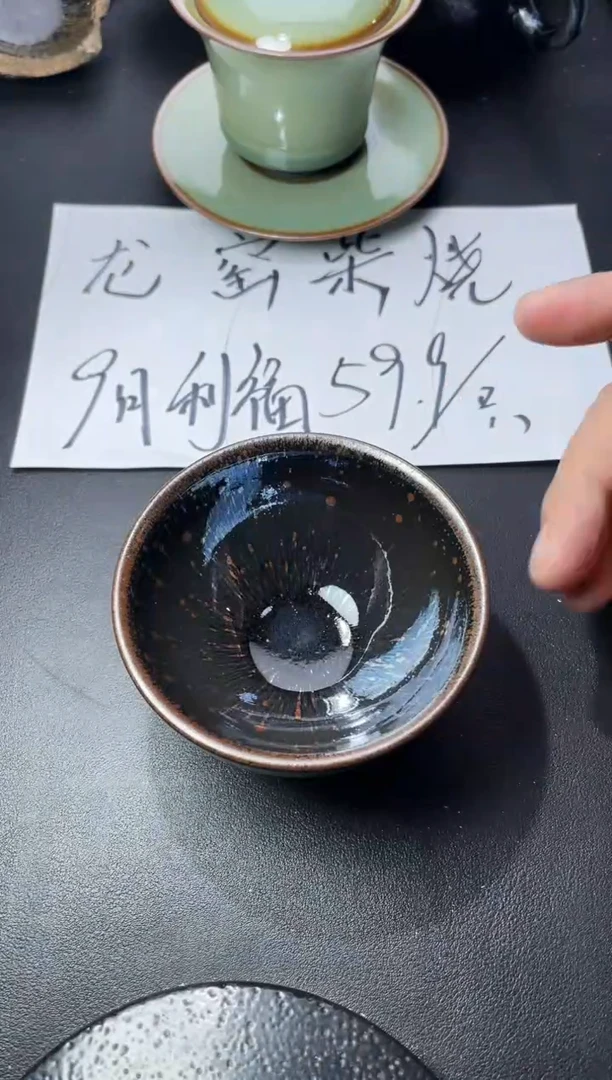 龙窑柴烧
9月利福59.9/只